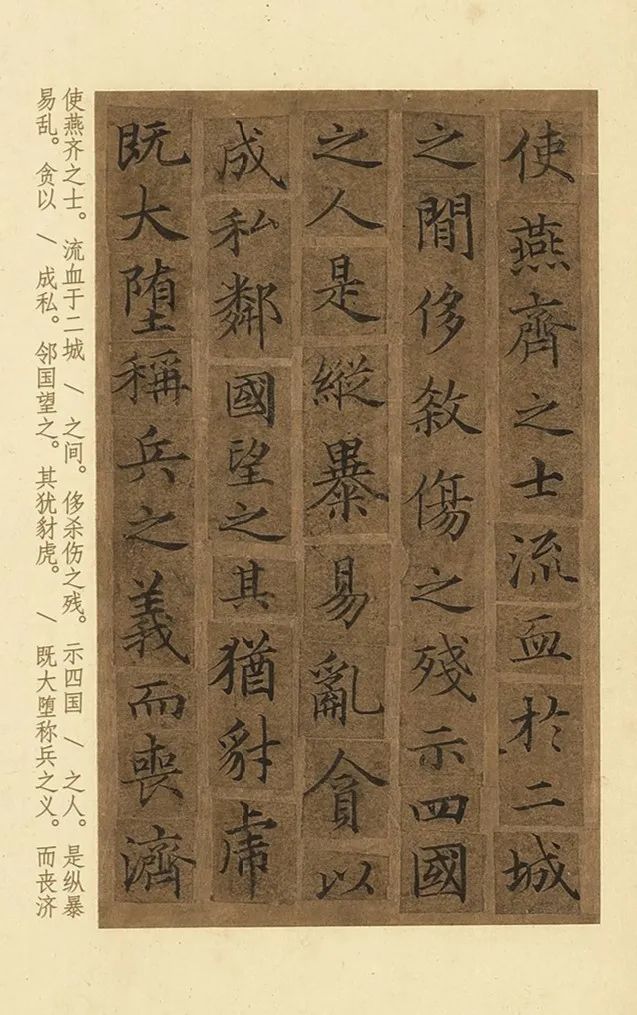 使燕齊之士流血於二城
之間侈煞傷之殘示四國
之人是縱暴易亂貪以
成私鄰國望之其猶豺虎
既大墮稱兵之義而喪濟
使燕齐之士。流血于二城 / 之间。侈杀伤之残。示四国 / 之人。是纵暴
易乱。贪以 / 成私。邻国望之。其犹豺虎。 / 既大堕称兵之义。而丧济